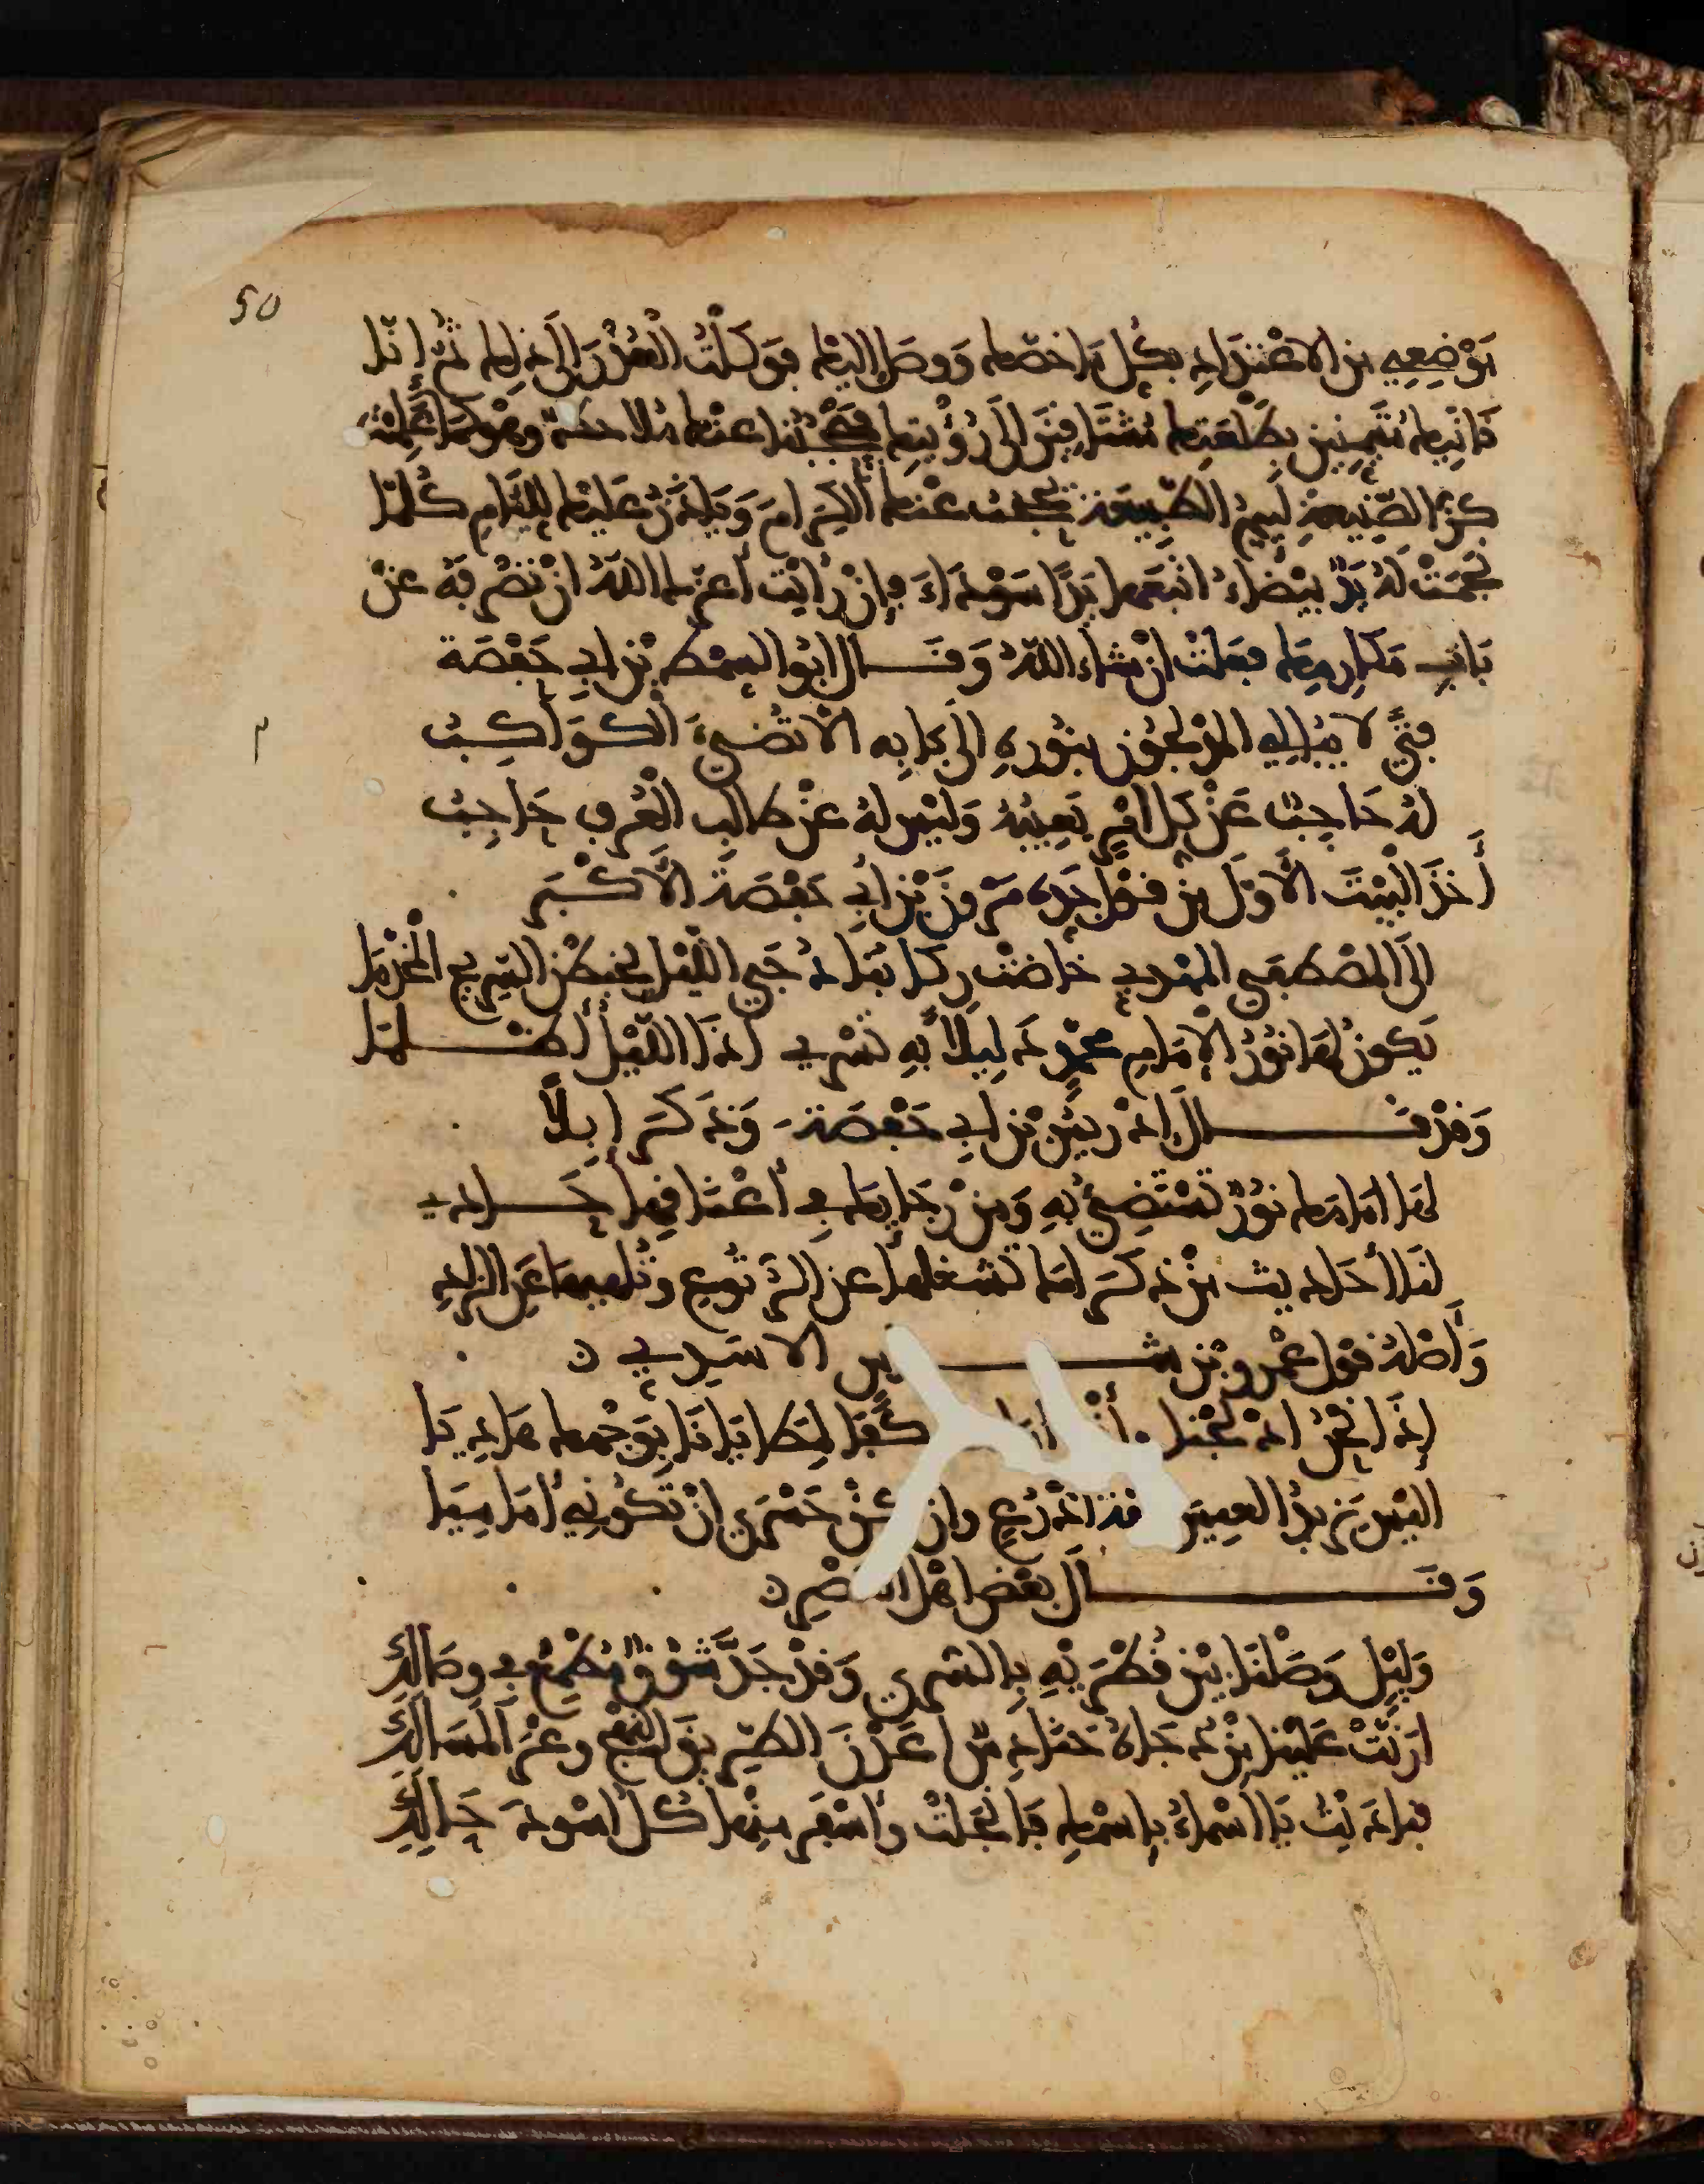 50
بموضعي من الاعتداد بكل ما خصك ووصل اليك فوكلت العذر الى ذلك ثم انا
اتيناك متيمنين بطلعتك مشتاقين الى رؤيتك فحجبنا عنك ملاحظ وهو كما علمت
كز الصنيعة لئيم الطبيعة يحجب عنك الكرام وياذن عليك للئام كلما
نجمت له يد بيضاء اتبعها يدا سوداء فان رايت اعزك الله ان تصرفه عن
باب مكارمك فعلت ان شاء الله وقال ابو السمط بن ابي حفصة
فتى لا يبالي المدلجون بنوره الى بابه الا تضيء الكواكب
له حاجب عن كل امر يعيبه وليس له عن طالب العرف حاجب
أخذ البيت الاول من قول جده مروان بن ابي حفصة الاكبر
الى المصطفى المهدي خاضت ركابنا دجى الليل يخبطن السريح المخدما
يكون لها نور الامام محمد دليلا به تسري اذا الليل أظلما
وقد قال ادريس بن ابي حفصة وذكر ابلا
لها امامك نور تستضيء به ومن رجائك في أعناقها حادي
لها أحاديث من ذكراك تشغلها عن الرتوع وتلهيها عن الزاد
وأصله قول عمرو بن شـ ـاس الاسدي
إذا نحن ادلجنا وأنت كفا لمطايانا بوجهك هاديا
اليس يزيد العيس خفة اذرع وان كن حسرى ان تكوني اماميا
وقال بعض اهل العصر
وليل وصلنا بين قطريه بالسرى وقد جد شوق مطمع في وصالك
اربت علينا من دجاه حنادس اعدن الطريق النهج وعر المسالك
فناديت يا اسماء باسمك فانجلت وأسفر منها كل اسود حالك